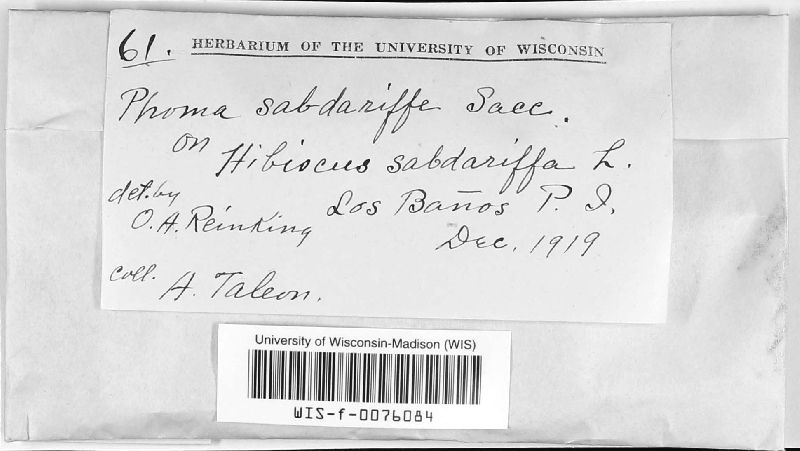 61. HERBARIUM OF THE UNIVERSITY OF WISCONSIN
Phoma sabdariffe Sacc.
on Hibiscus sabdariffa L.
det. by
O. A. Reinking
Los Baños P. I.
Dec. 1919
coll. A. Taleon.
University of Wisconsin-Madison (WIS)
WIS-f-0076084